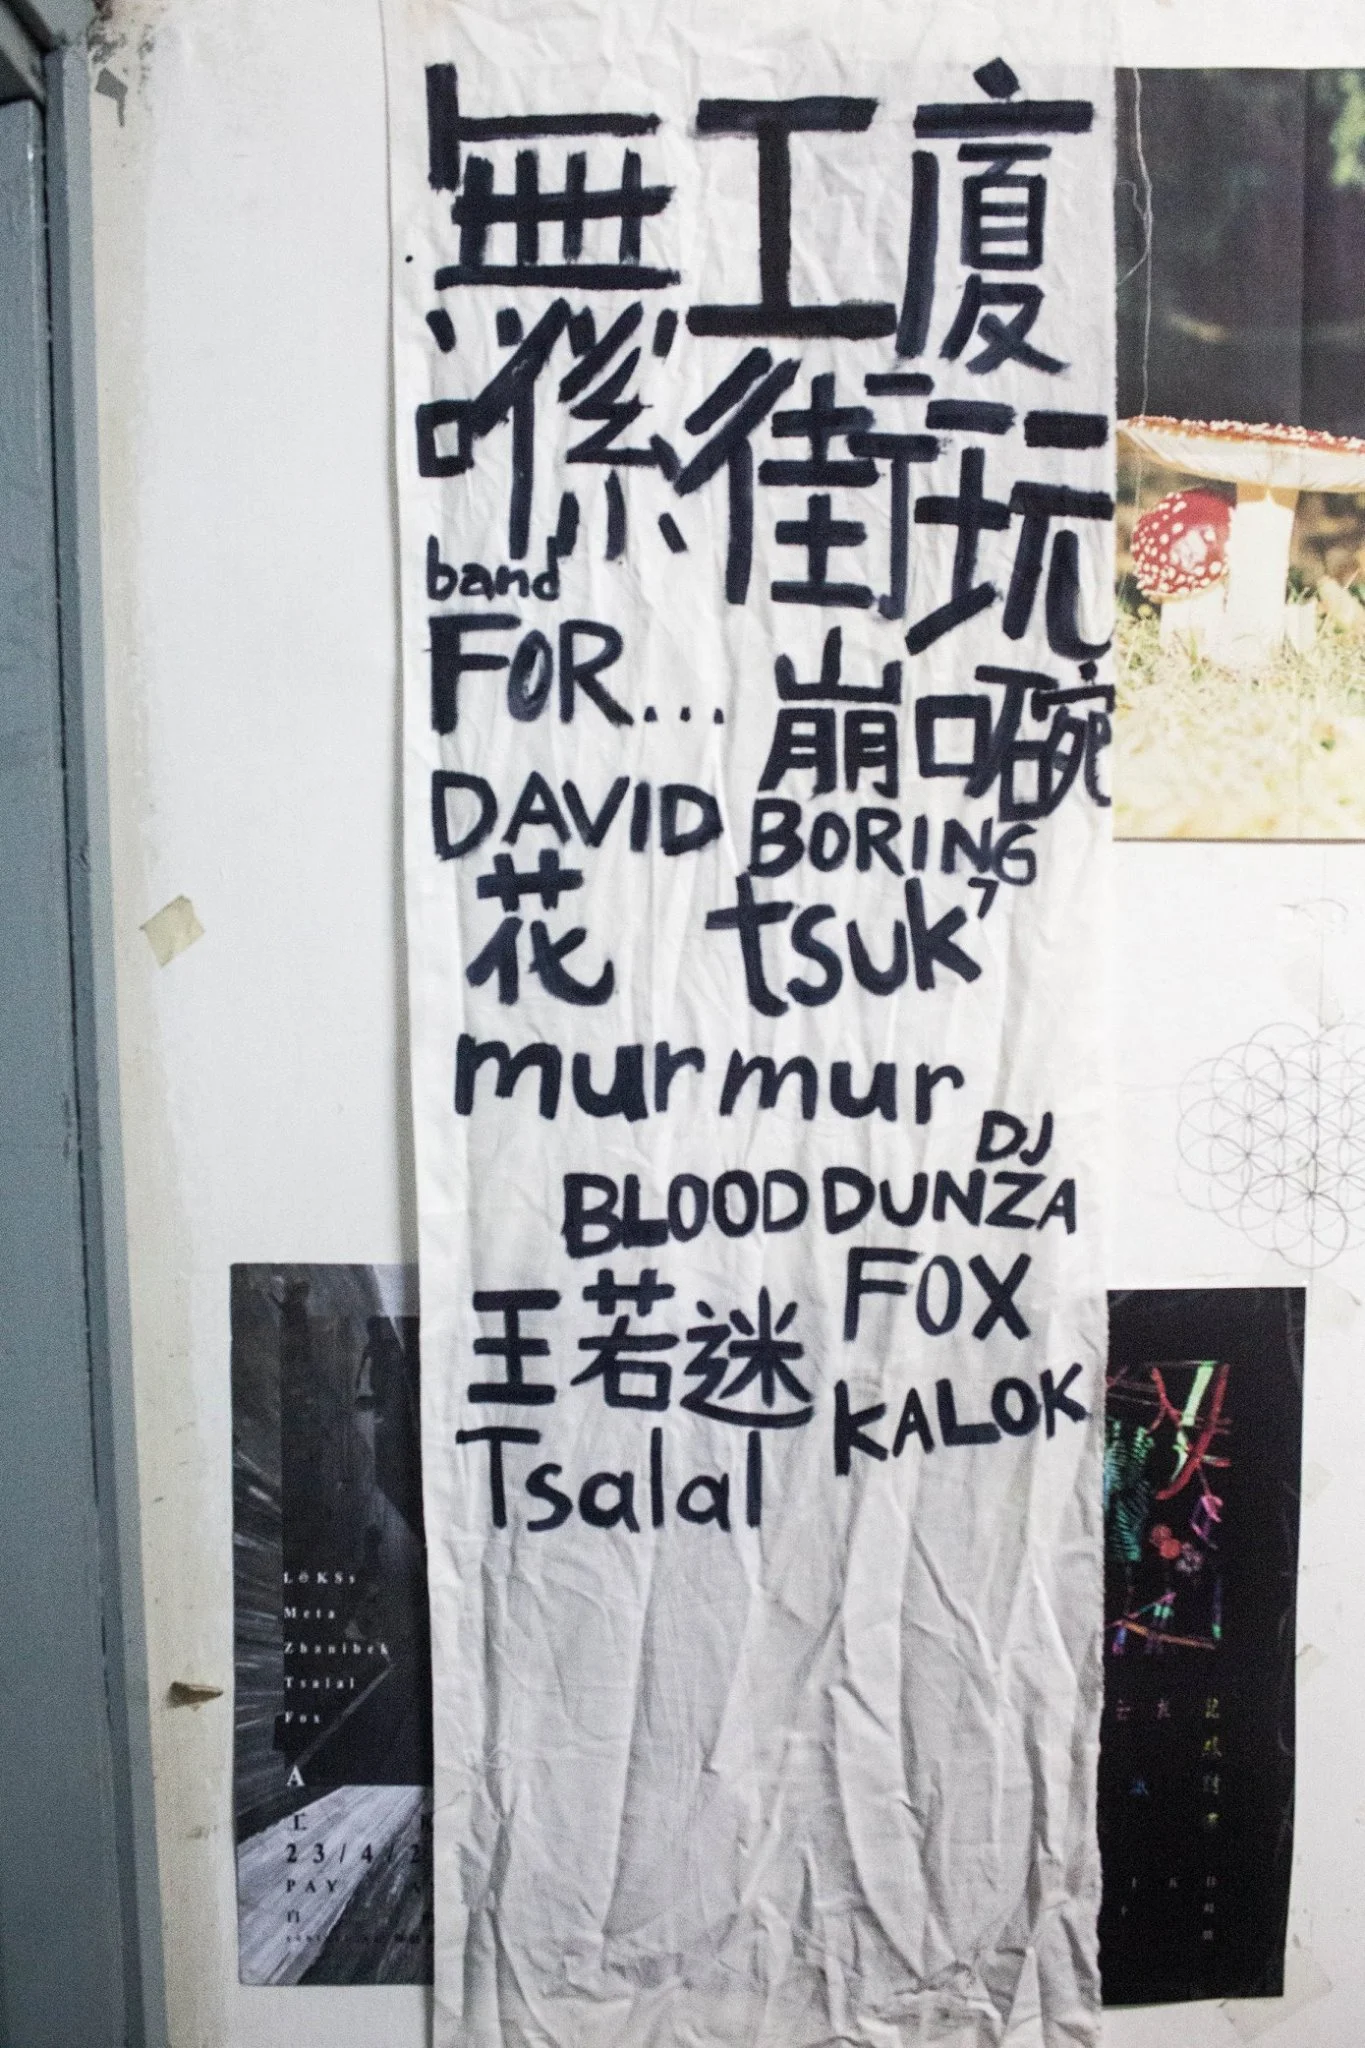 無工廈
喺街玩
band
FOR... 崩口碗
DAVID BORING
花 tsuk7
murmur
DJ
BLOOD DUNZA
王若迷 FOX
KALOK
Tsalal
LɵKSs
Meta
Zhanibek
Tsalal
Fox
A
工
23/4/2
PAY
自